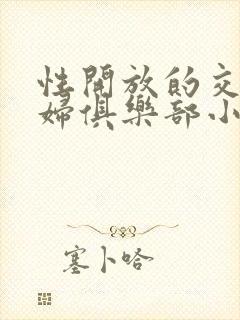 性開放的交
婦俱樂部小
塞卜哈